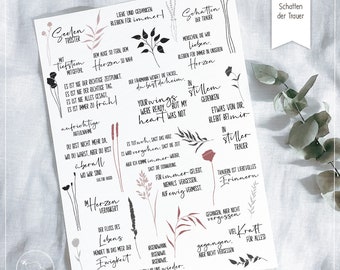 Schatten
der Trauer
Seelen
TRÖSTER
LIEBE UND GEDANKEN
BLEIBEN für immer!
Schatten
DER TRAUER
MIT
tiefstem
MITGEFÜHL
DEM HAUS SO FERN, DEM
Herzen SO NAH
MENSCHEN DIE WIR
lieben,
BLEIBEN IM UNSEREM
Herzen
ES IST NIE DER RICHTIGE ZEITPUNKT.
ES IST NIE DER RICHTIGE TAG.
ES IST NIE ALLES GESAGT.
ES IST IMMER ZU früh!
du bist daheim
YOUR wings
WERE READY, BUT MY
heart WAS NOT
IN
STILLEM
GEDENKEN
ETWAS VON DIR,
bleibt IN mir
aufrichtige
ANTEILNAHME
DU BIST NICHT MEHR DA,
WO DU WARST, ABER DU BIST
überall
WO WIR SIND.
IN
stiller
TRAUER
IM Herzen
VERANKERT
FÜR immer GELIEBT,
NIEMALS VERGESSEN,
AUF ewig VERMISST.
TRAUER IST LIEBEVOLLES
Erinnern
DER FLUSS DES
Lebens
MÜNDET IN DIE
Ewigkeit
GEGANGEN, ABER NICHT
vergessen
gegangen,
ABER NICHT
viel Kraft
FÜR ALLES!
IRGENDWANN,